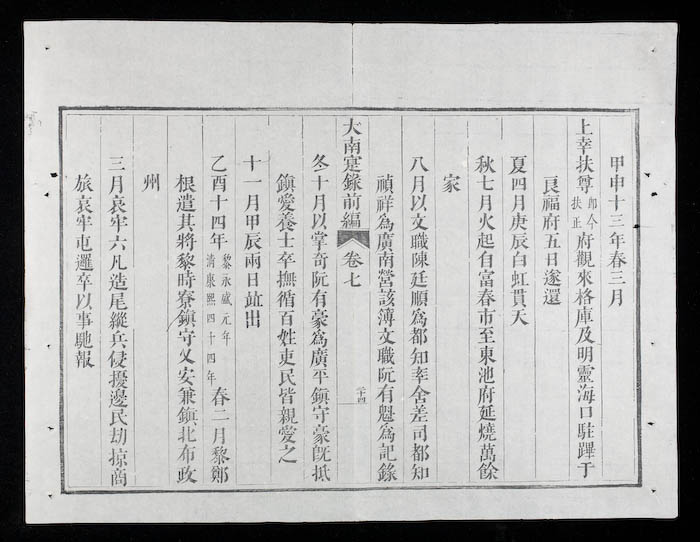 甲申十三年春三月
上幸扶尊卽今扶正府觀來格庫及明靈海口駐蹕于
良福府五日遂還
夏四月庚辰白虹貫天
秋七月火起自富春市至東池府延燒萬餘
家
八月以文職陳廷順爲都知幸舍差司都知
禎祥爲廣南營該簿文職阮有魁爲記錄
大南寔錄前編 卷七 二十四
冬十月以掌奇阮有豪爲廣平鎮守豪旣抵
鎮愛養士卒撫循百姓吏民皆親愛之
十一月甲辰兩日並出
乙酉十四年黎永盛元年清康熙四十四年春二月黎鄭
根遣其將黎時寮鎮守乂安兼鎮北布政
州
三月哀牢六凡造尾縱兵侵擾邊民劫掠商
旅哀牢屯邏卒以事馳報